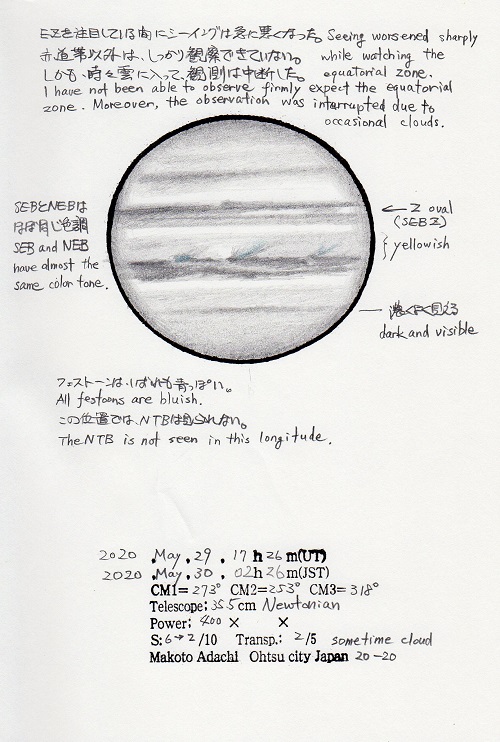 EZを注目している間にシーイングは急に悪くなった。 Seeing worsened sharply
赤道帯以外は、しっかり観察できていない。 while watching the
しかも、時々雲に入って、観測は中断した。 equatorial zone.
I have not been able to observe firmly expect the equatorial
zone. Moreover, the observation was interrupted due to
occasional clouds.
SEBとNEBは
ほぼ同じ色調
SEB and NEB
have almost the
same color tone.
← Z oval
(SEBZ)
} yellowish
— 濃く見える
dark and visible
フェストーンはいずれも青っぽい。
All festoons are bluish.
この位置では、NTBは見られない。
The NTB is not seen in this longitude.
2020 .May . 29 . 17 h 26 m(UT)
2020 .May . 30 . 02h 26 m(JST)
CM1= 273° CM2= 253° CM3= 318°
Telescope: 35.5 cm Newtonian
Power: 400 × ×
S: 6→2 /10 Transp.: 2 /5 sometime cloud
Makoto Adachi Ohtsu city Japan 20-20